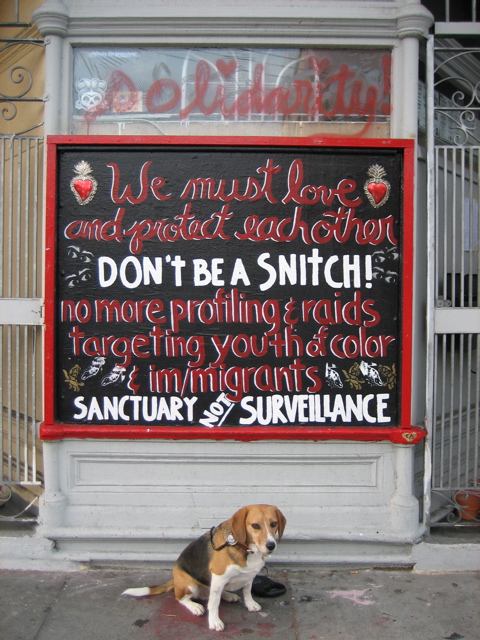 Solidarity!
We must love
and protect each other
DON'T BE A SNITCH!
no more profiling & raids
targeting youth of color
& im/migrants
SANCTUARY NOT SURVEILLANCE